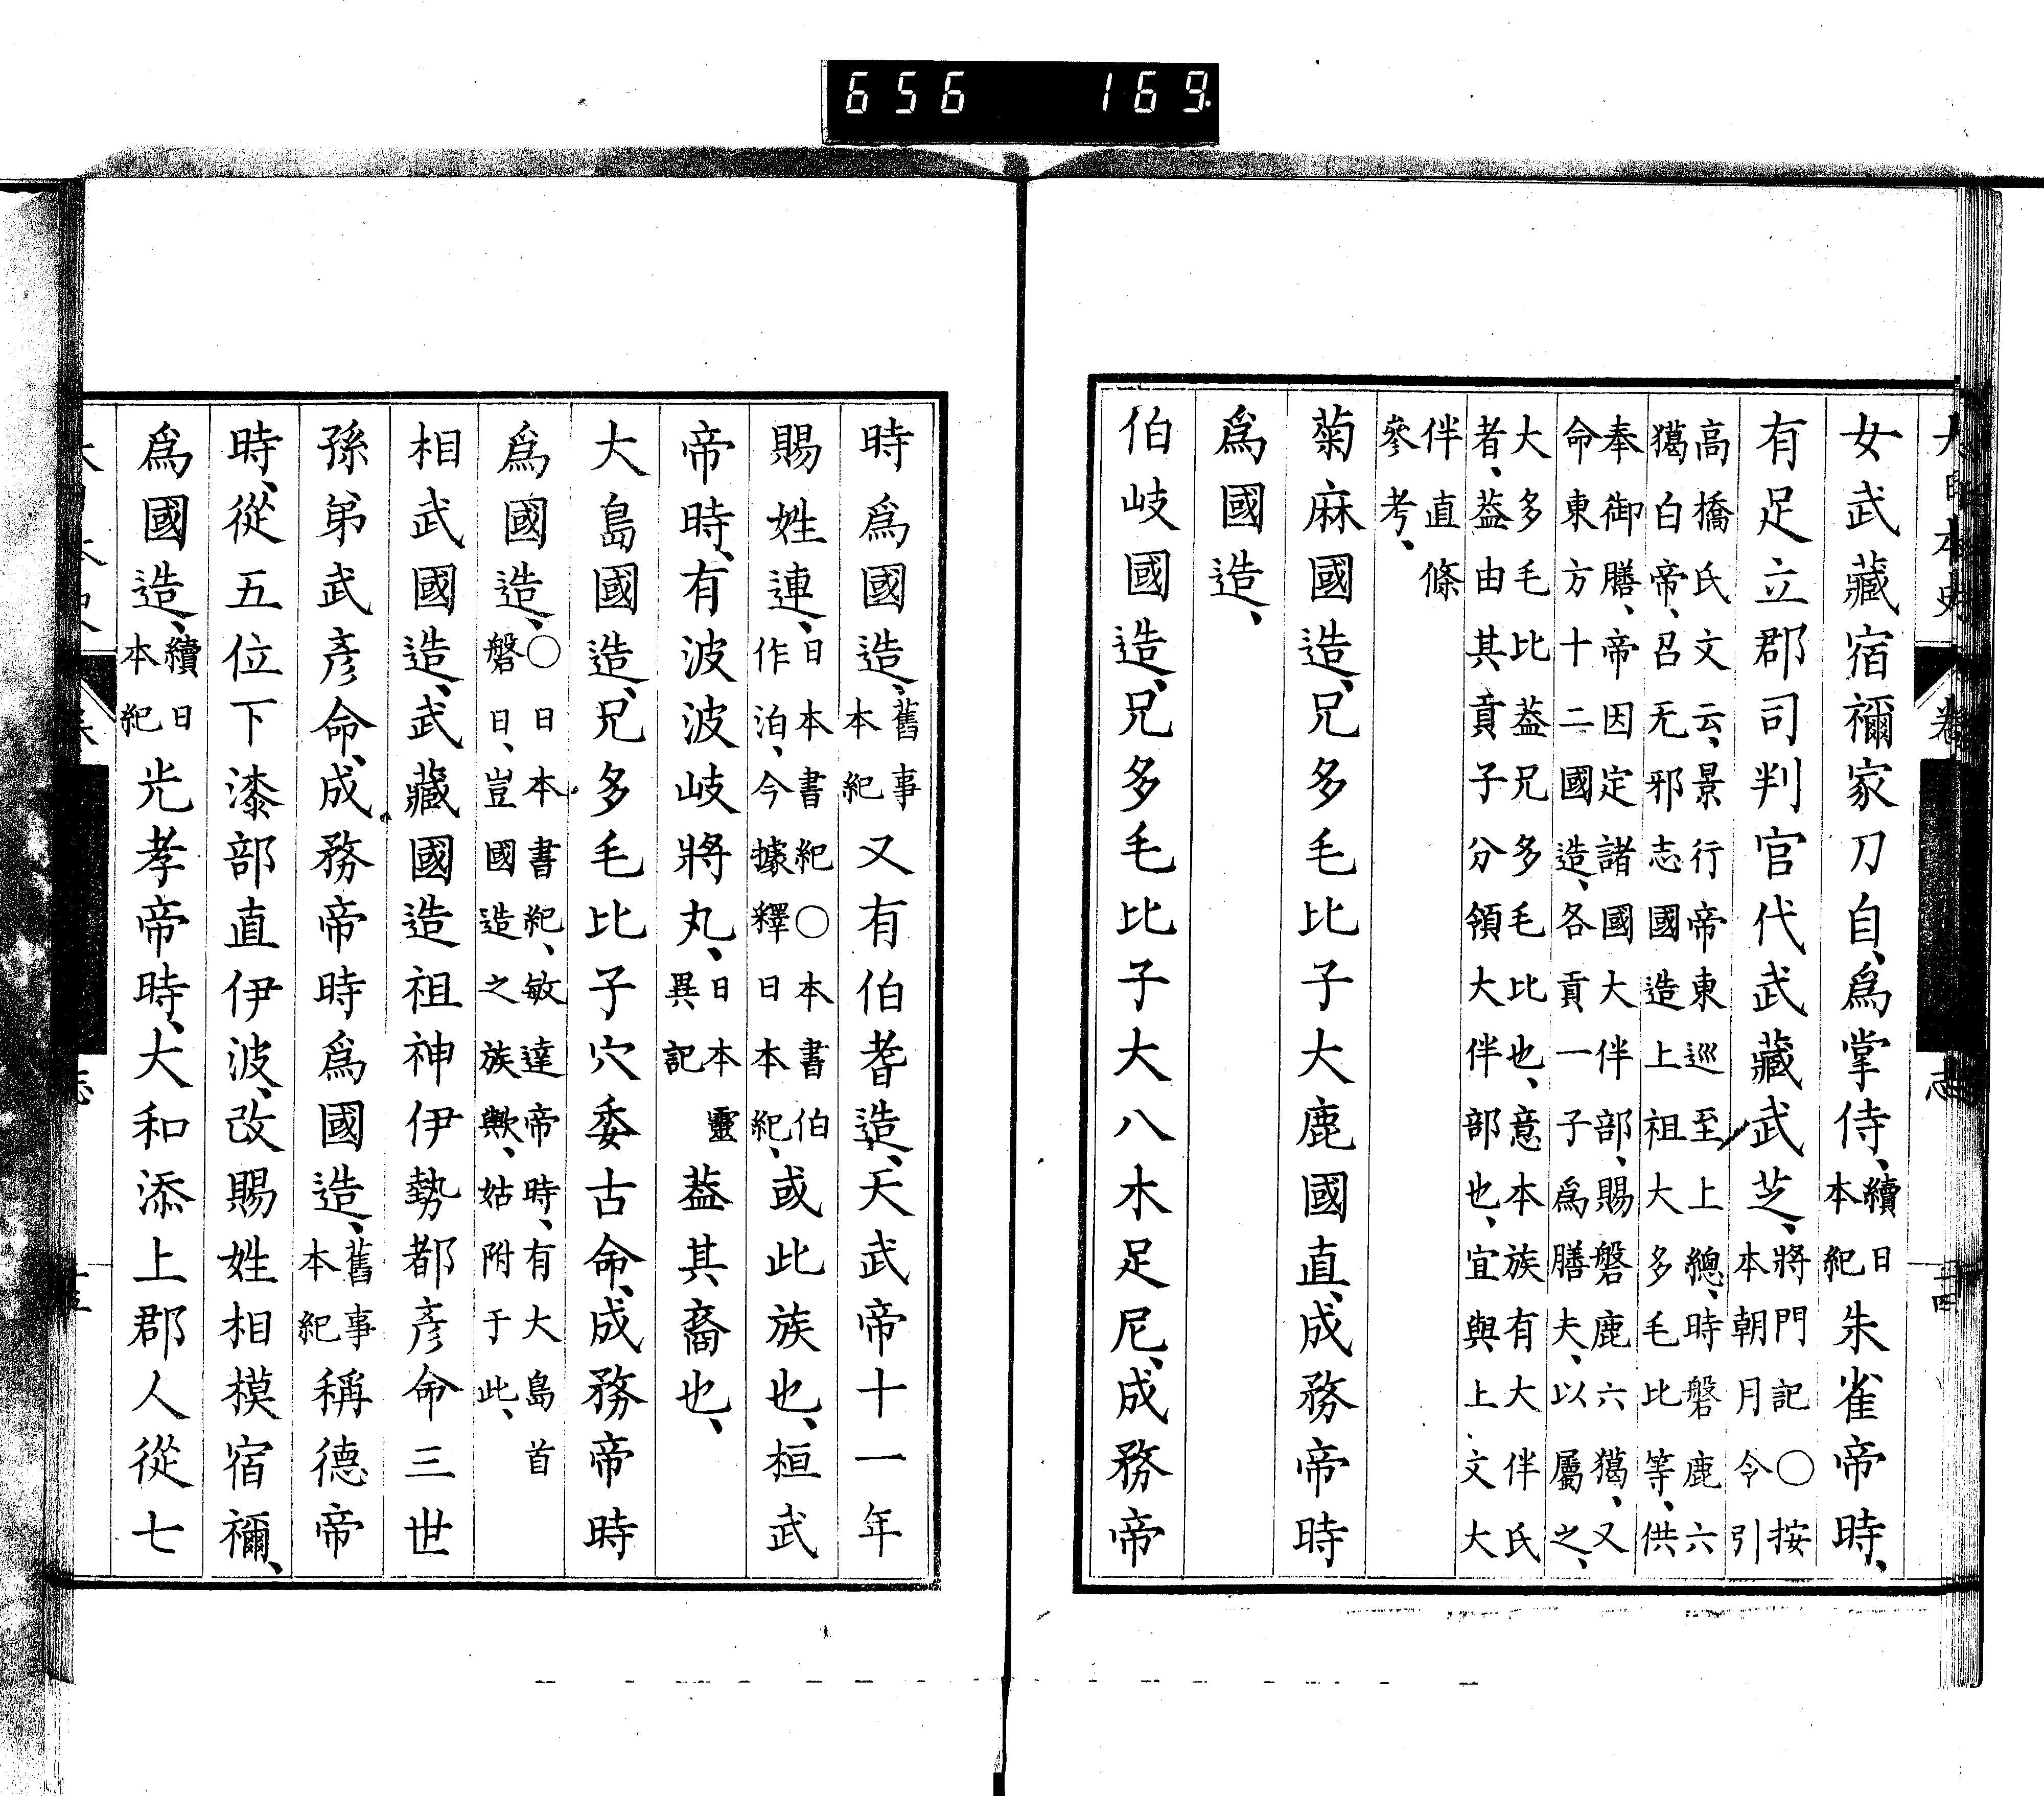 656 169.
女武藏宿禰家刀自、爲掌侍、續日本紀朱雀帝時、
有足立郡司判官代武藏武芝、將門記○按本朝月令引
高橋氏文云、景行帝東巡至上總、時磐鹿六
獦白帝、召无邪志國造上祖大多毛比等、供
奉御膳、帝因定諸國大伴部、賜磐鹿六獦、又
命東方十二國造、各貢一子爲膳夫、以屬之、
大多毛比蓋兄多毛比也、意本族有大伴氏
者、蓋由其貢子分領大伴部也、宜與上文大
伴直條
參考、
菊麻國造、兄多毛比子大鹿國直、成務帝時
爲國造、
伯岐國造、兄多毛比子大八木足尼、成務帝
時爲國造、舊事本紀又有伯耆造、天武帝十一年
賜姓連、日本書紀○日本書紀、伯作泊、今據釋日本紀、或此族也、桓武
帝時、有波波岐將丸、日本靈異記蓋其裔也、
大島國造、兄多毛比子穴委古命、成務帝時
爲國造、○日本書紀、敏達帝時、有大島首磐日、豈國造之族歟、姑附于此、
相武國造、武藏國造祖神伊勢都彥命三世
孫弟武彥命、成務帝時爲國造、舊事本紀稱德帝
時、從五位下漆部直伊波、改賜姓相模宿禰、
爲國造、續日本紀光孝帝時、大和添上郡人從七